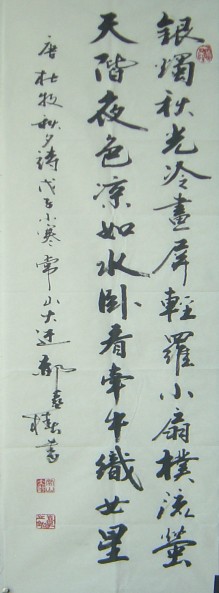 銀燭秋光冷畫屏輕羅小扇撲流螢
天階夜色凉如水卧看牽牛織女星
唐杜牧秋夕詩戊子小寒常山大迂書